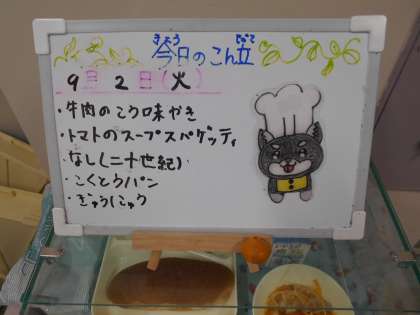 今日のこん立
きょう だて
9月2日(火)
・牛肉のこうみ味やき
・トマトのスープスパゲッティ
・なし(二十世紀)
・こくとうパン
・ぎゅうにゅう